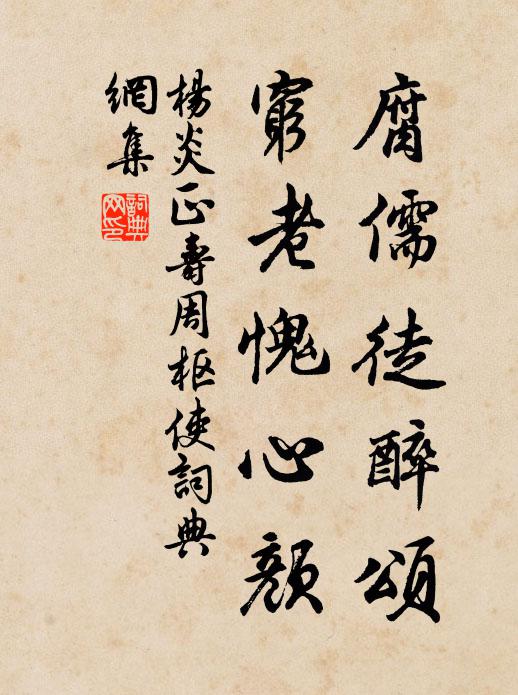 腐儒徒醉頌
窮老愧心顏
楊炎正壽周枢使詞典
網集
詞典
网印